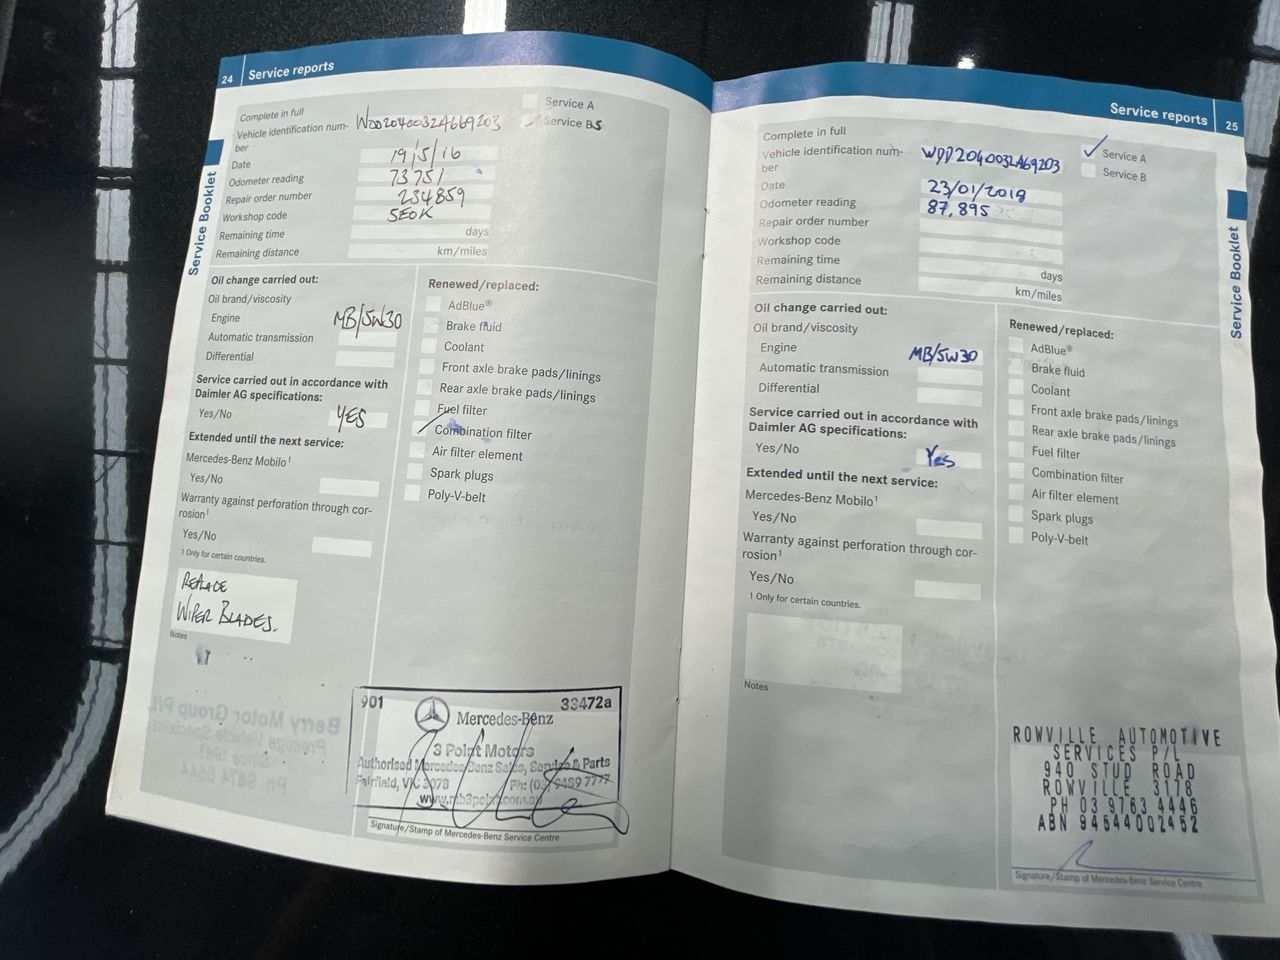 24 Service reports
Complete in full
Vehicle identification num-
ber
WDD2040032A669203
Service A
Service B5
Date
19/5/16
Odometer reading
73751
Repair order number
234859
Workshop code
SEOK
Remaining time
days
Remaining distance
km/miles
Service Booklet
Oil change carried out:
Oil brand/viscosity
Engine
MB/5W30
Automatic transmission
Differential
Service carried out in accordance with
Daimler AG specifications:
Yes/No
YES
Extended until the next service:
Mercedes-Benz Mobilo¹
Yes/No
Warranty against perforation through cor-
rosion¹
Yes/No
1 Only for certain countries.
REPLACE
WIPER BLADES.
Notes
Renewed/replaced:
AdBlue®
Brake fluid
Coolant
Front axle brake pads/linings
Rear axle brake pads/linings
Fuel filter
Combination filter
Air filter element
Spark plugs
Poly-V-belt
Berry Motor Group P/L
Prestige Vehicle Specialist
901 33472a
Mercedes-Benz
3 Point Motors
Authorised Mercedes-Benz Sales, Service & Parts
Fairfield, VIC 3078 Ph: (03) 9489 7777
www.mb3point.com.au
Signature/Stamp of Mercedes-Benz Service Centre
Service reports 25
Complete in full
Vehicle identification num-
ber
WDD2040032A69203
Service A
Service B
Date
23/01/2018
Odometer reading
87,895
Repair order number
Workshop code
Remaining time
days
Remaining distance
km/miles
Service Booklet
Oil change carried out:
Oil brand/viscosity
Engine
MB/5W30
Automatic transmission
Differential
Service carried out in accordance with
Daimler AG specifications:
Yes/No
Yes
Extended until the next service:
Mercedes-Benz Mobilo¹
Yes/No
Warranty against perforation through cor-
rosion¹
Yes/No
1 Only for certain countries.
Notes
Renewed/replaced:
AdBlue®
Brake fluid
Coolant
Front axle brake pads/linings
Rear axle brake pads/linings
Fuel filter
Combination filter
Air filter element
Spark plugs
Poly-V-belt
ROWVILLE AUTOMOTIVE
SERVICES P/L
940 STUD ROAD
ROWVILLE 3178
PH 03 9763 4446
ABN 94644002462
Signature/Stamp of Mercedes-Benz Service Centre